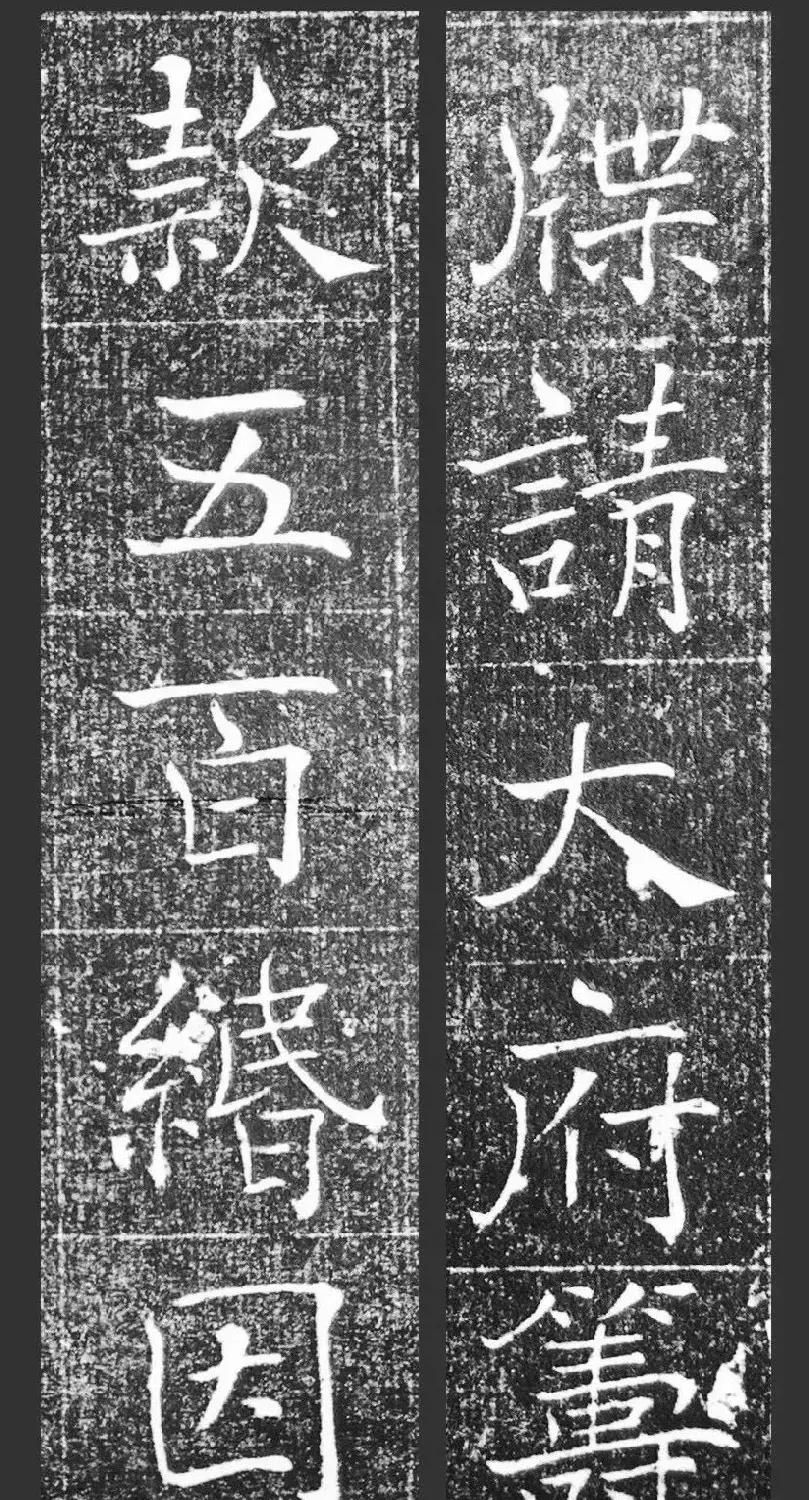 牒請大府籌
款五百緡因